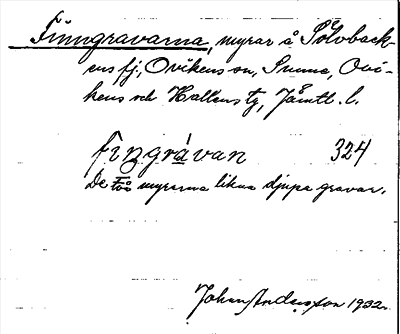 Finngravarna, myrar å Sölvback-
ens fj., Ovikens sn, Sunne, Ovi-
kens och Hallens tg, Jämtl. l.
fìngrávan 324
De två myrarna likna djupa gravar.
Johan Andersson 1932.